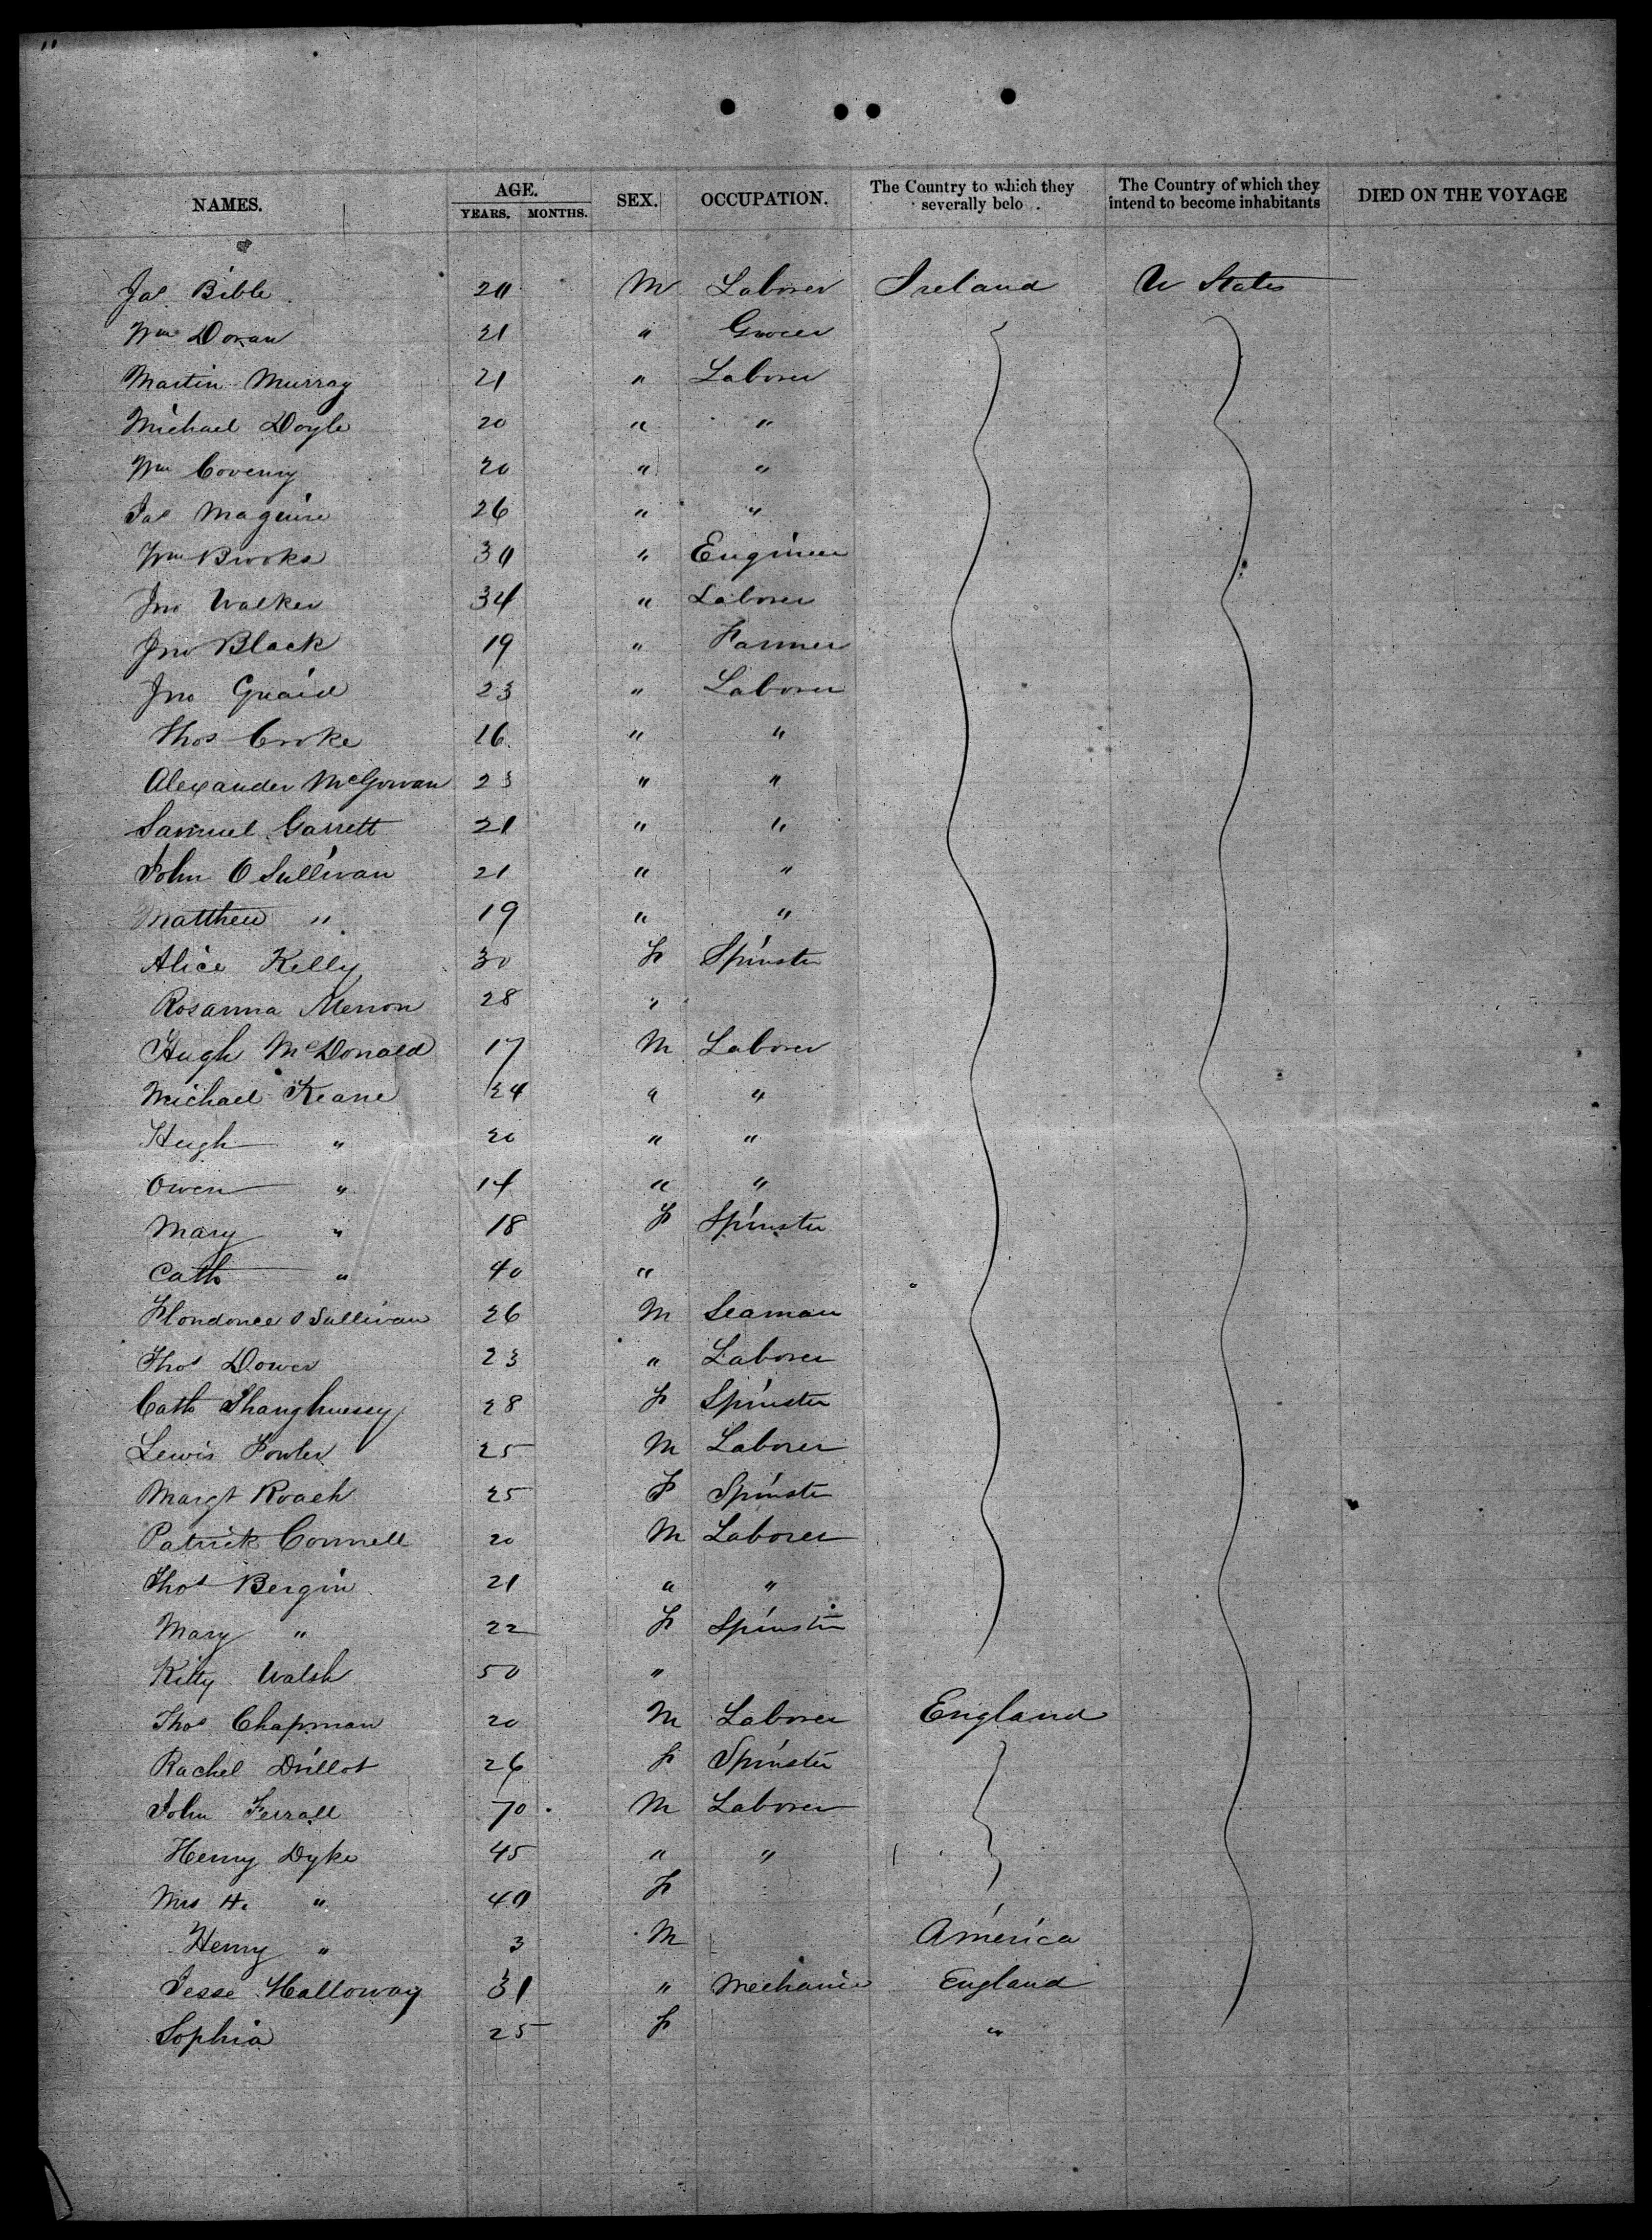 "
NAMES. AGE. YEARS. MONTHS. SEX. OCCUPATION. The Country to which they severally belo . The Country of which they intend to become inhabitants DIED ON THE VOYAGE
Jas Bible 20 M Laborer Ireland U States
Wm Doran 21 " Grocer
Martin Murray 21 " Laborer
Michael Doyle 20 " "
Wm Coveny 20 " "
Jas Maguire 26 " "
Wm Brooks 30 " Engineer
Jno Walker 34 " Laborer
Jno Black 19 " Farmer
Jno Quaid 23 " Laborer
Thos Croke 16 " "
Alexander McGowan 23 " "
Samuel Garrett 21 " "
John O Sullivan 21 " "
Matthew " 19 " "
Alice Kelly 30 F Spinster
Rosanna 28 "
Hugh McDonald 17 M Laborer
Michael Keane 24 " "
Hugh " 20 " "
Owen " 14 " "
Mary " 18 F Spinster
Cath " 40 "
O Sullivan 26 M Seaman
Thos Dower 23 " Laborer
Cath Shaughnessy 28 F Spinster
Lewis Fowler 25 M Laborer
Margt Roach 25 F Spinster
Patrick Connell 20 M Laborer
Thos Bergin 21 " "
Mary " 22 F Spinster
Kitty Walsh 50 "
Thos Chapman 20 M Laborer England
Rachel Drillot 26 F Spinster
John Ferrall 70 M Laborer
Henry Dyke 45 " "
Mrs H. " 40 F
Henry " 3 M America
Jesse Halloway 31 " Mechanic England
Sophia 25 F "